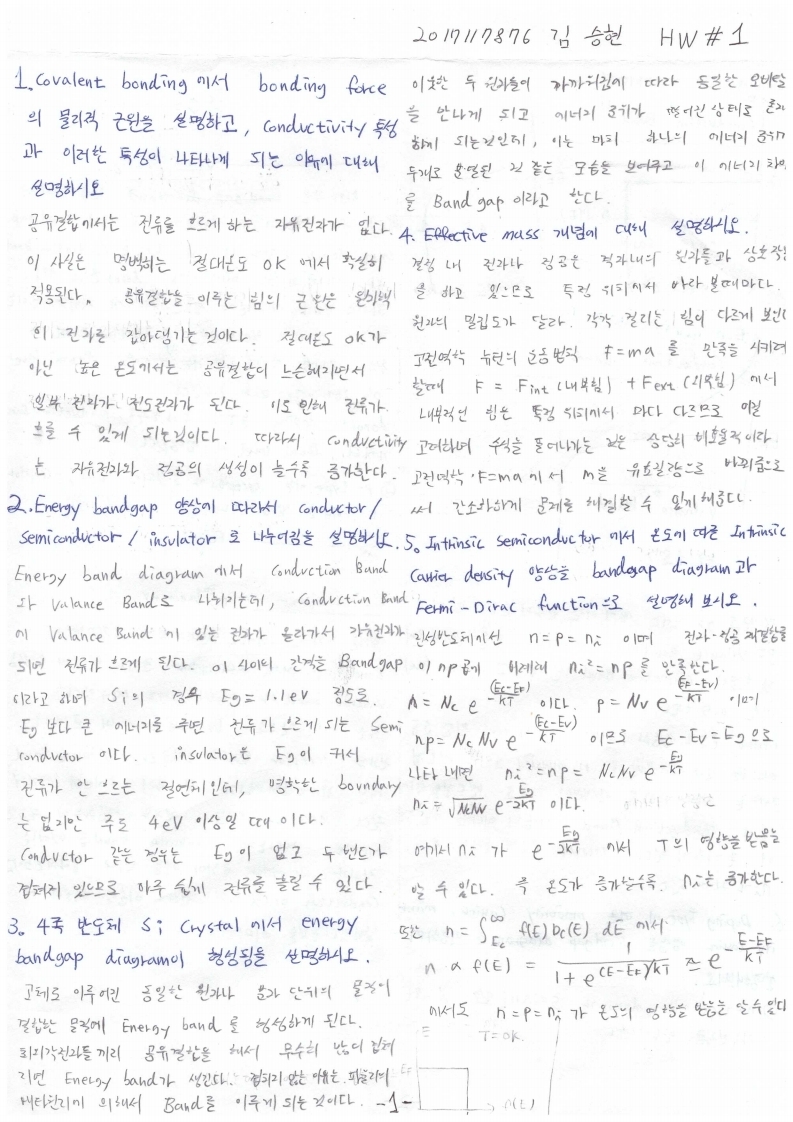 2017117876 김 승현 HW # 1
1. Covalent bonding 에서 bonding force
의 물리적 근원을 설명하고, Conductivity 특성
과 이러한 특성이 나타나게 되는 이유에 대해
설명하시오
공유결합에서는 전류를 흐르게 하는 자유전자가 없다.
이 사실은 명백히는 절대온도 0K 에서 확실히
적용된다. 공유결합을 이루는 힘의 근원은 원자핵
이 전자를 잡아당기는 것이다. 절대온도 0K가
아닌 높은 온도에서는 공유결합이 느슨해지면서
일부 전자가 전도전자가 된다. 이로 인해 전류가
흐를 수 있게 되는것이다. 따라서 Conductivity
는 자유전자와 정공의 생성이 늘수록 증가한다.
2. Energy bandgap 양상에 따라서 conductor /
Semiconductor / insulator 로 나누어짐을 설명하시오.
Energy band diagram 에서 Conduction Band
와 Valance Band로 나뉘지는데, Conduction Band
에 Valance Band 에 있는 전자가 올라가서 자유전자가
되면 전류가 흐르게 된다. 이 사이의 간격을 Bandgap
이라고 하며 Si의 경우 Eg = 1.1eV 정도로.
Eg 보다 큰 에너지를 주면 전류가 흐르게 되는 Semi
conductor 이다. insulator은 Eg이 커서
전류가 안 흐르는 절연체인데, 명확한 boundary
는 없지만 주로 4eV 이상일 때 이다.
Conductor 같은 경우는 Eg이 없고 두 밴드가
겹쳐져 있으므로 아주 쉽게 전류를 흘릴 수 있다.
3. 4족 반도체 Si Crystal 에서 energy
bandgap diagram이 형성됨을 설명하시오.
고체로 이루어진 동일한 원자나 분자 단위의 물질이
결합한 물질에 Energy band 를 형성하게 된다.
최외각전자들끼리 공유결합을 해서 무수히 많이 겹쳐
지면 Energy band가 생긴다. 겹치지 않는 이유는 파울리의
배타원리에 의해서 Band를 이루게 되는 것이다. -1-
이웃한 두 원자들이 가까워짐에 따라 동일한 오비탈
을 만나게 되고 에너지 준위가 떨어진 상태로 존재
하게 되는것인데, 이는 마치 하나의 에너지 준위가
두개로 분열된 것 같은 모습을 보여주고 이 에너지 차이
를 Band gap 이라고 한다.
4. Effective mass 개념에 대해 설명하시오.
결정 내 전자나 정공은 격자내의 원자들과 상호작용
을 하고 있으므로 특정 위치에서 바라 볼때마다.
원자의 밀집도가 달라. 각각 걸리는 힘이 다르게 보인다
고전역학 뉴턴의 운동법칙 F=ma 를 만족을 시키려
할때 F = Fint (내부힘) + Fext (외부힘) 에서
내부적인 힘은 특정 위치에서 마다 다르므로 이걸
고려하며 수식을 풀어나가는 것은 상당히 비효율적이라.
고전역학 F=ma 에서 m을 유효질량으로 바꿔줌으로
써 간소화하게 문제를 해결할 수 있게 해준다.
5. Intrinsic semiconductor 에서 온도에 따른 Intrinsic
Carrier density 양상을 bandgap diagram과
Fermi - Dirac function으로 설명해 보시오.
진성반도체에선 n = p = ni 이며 전자-정공 재결합률
이 np곱에 비례해 ni² = np 를 만족한다.
n = Nc e^-(Ec-EF)/kT 이다. p = Nv e^-(EF-Ev)/kT 이며
np = Nc Nv e^-(Ec-Ev)/kT 이므로 Ec - Ev = Eg 으로
나타 내면 ni² = np = NcNv e^-Eg/kT
ni = √NcNv e^-Eg/2kT 이다.
여기서 ni 가 e^-Eg/2kT 에서 T의 영향을 받음을
알 수 있다. 즉 온도가 증가할수록 ni는 증가한다.
또한 n = ∫Ec^∞ f(E) Dc(E) dE 에서.
n ∝ f(E) = 1 / 1 + e^(E-EF)/kT ≃ e^-(E-EF)/kT
에서도 n = p = ni 가 온도의 영향을 받음을 알 수 있다
T=0K.
E
EF
f(E)